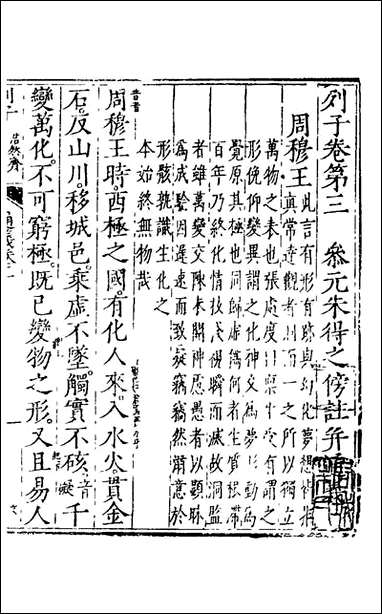 列子卷第三 參元朱得之傍註并
周穆王 此言有形有跡與幻化夢想皆
真常達觀者則 而一之所以獨立
萬物之表也張處度曰稟生受有謂之
形俛仰變異謂之化神交為夢形動為
覺原其極也同歸 何者生質根滯
百年乃終化情枝淺視瞬而滅故洞監
者雖萬變交陳未關神慮愚者以顯昧
為成驗因遲速而致疑竊竊然爾意於
形骸孰識生化之
本始終無物哉
周穆王時。西極之國。有化人來。入水火。貫金
石。反山川。移城邑。乘虛不墜。觸實不硋。音礙千
變萬化。不可窮極。既已變物之形。又且易人
列子 浩然齋